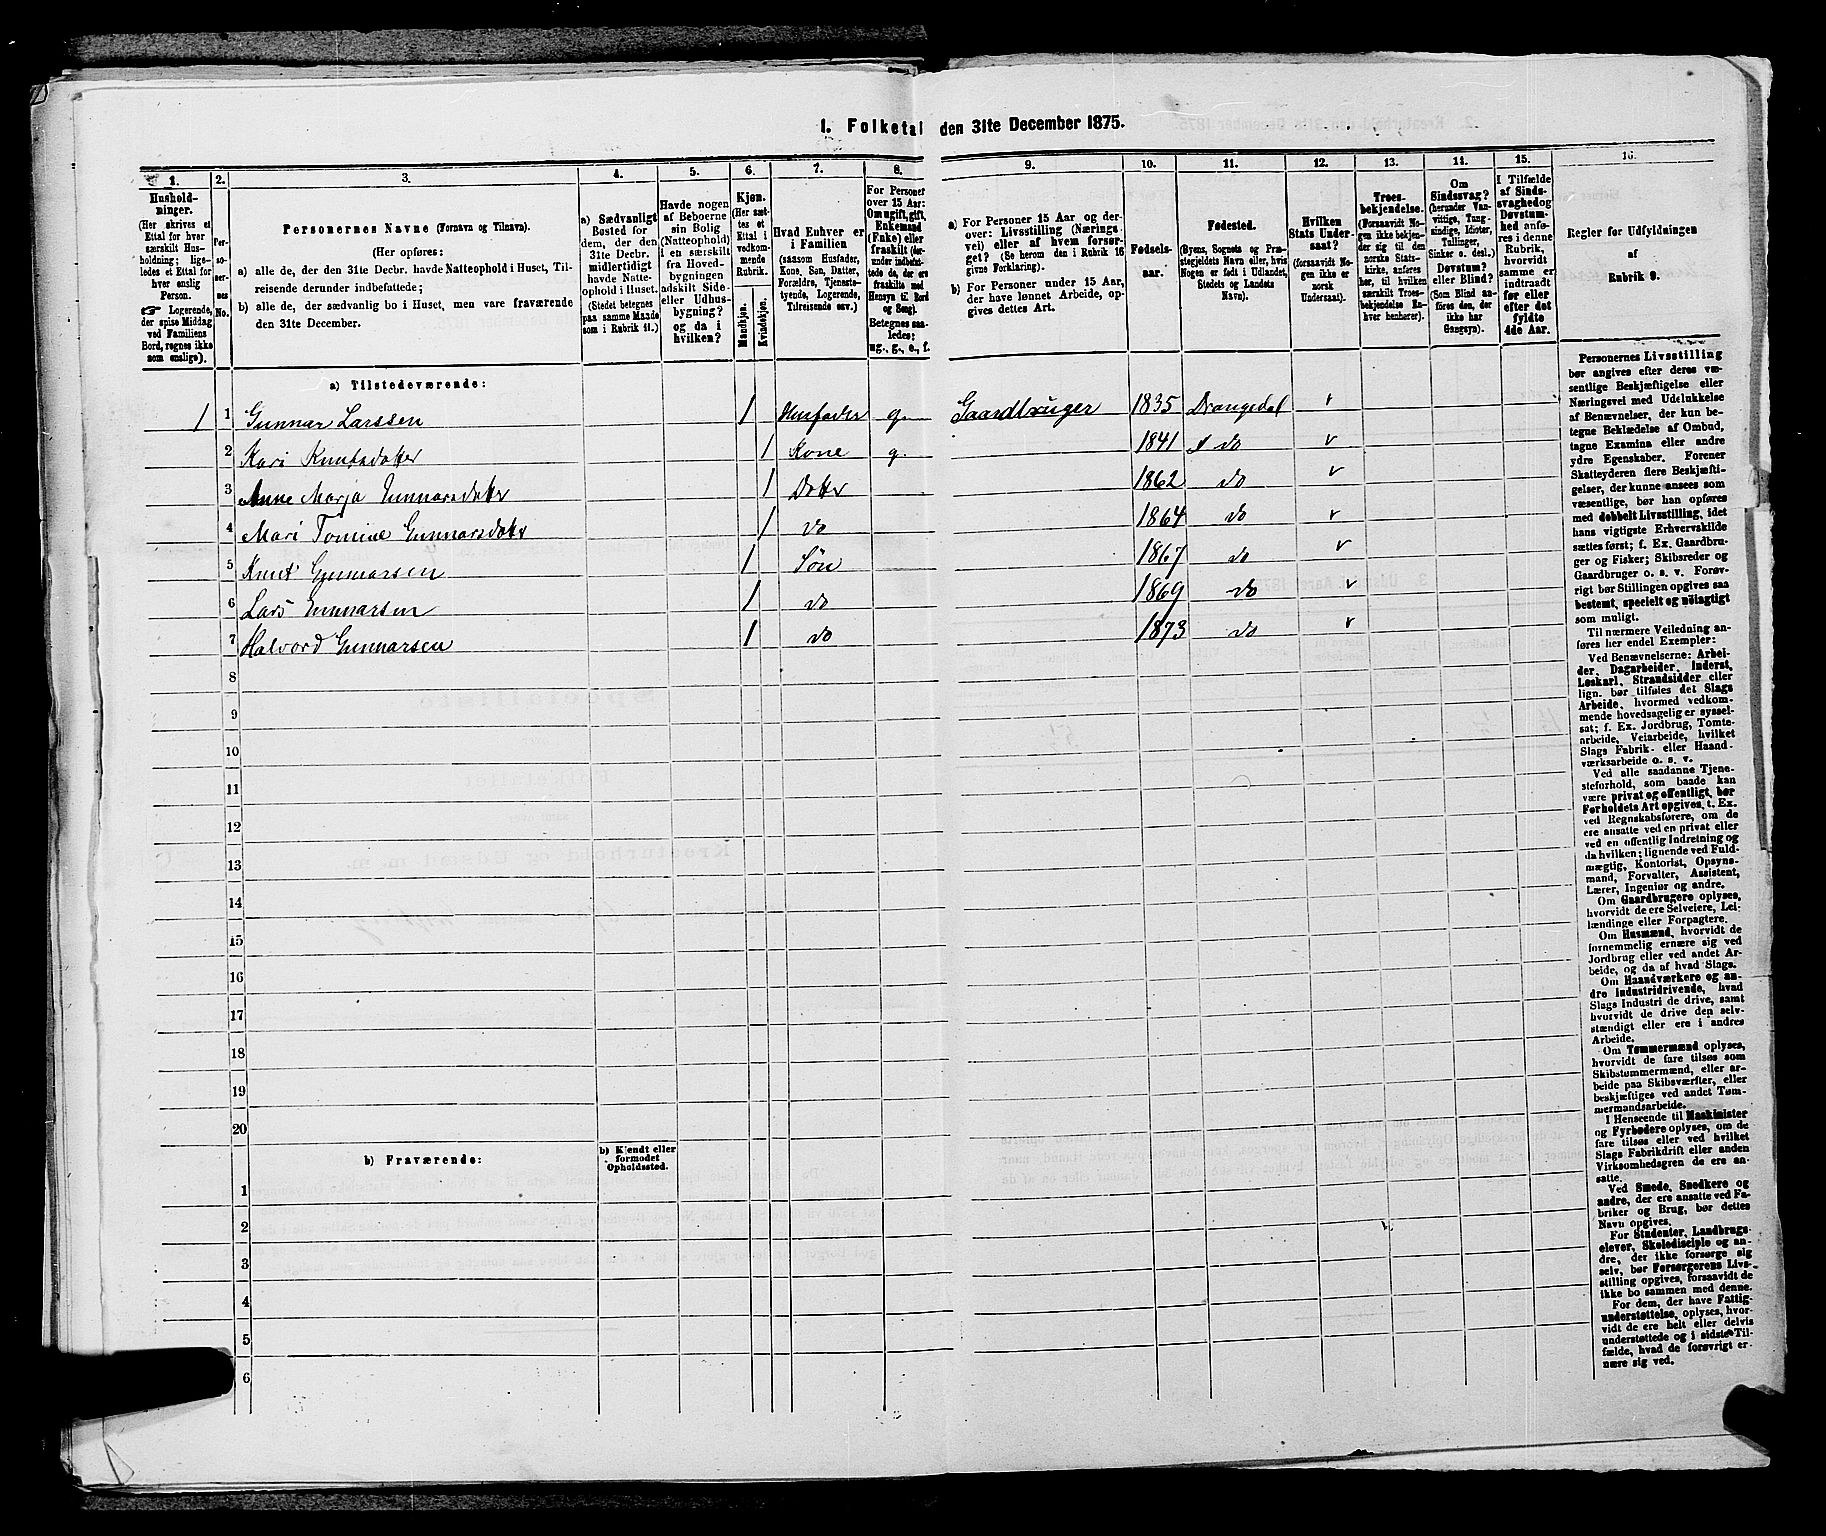 1. Folketal den 31te December 1875.
1.
Hushold-
ninger.
(Her skrives et
Ettal for hver
særskilt Hus-
holdning; lige-
ledes et Ettal for
hver enslig
Person.
☞ Logerende,
der spise Middag
ved Familiens
Bord, regnes ikke
som enslige).
2.
Per-
so-
ner-
nes
No.
3.
Personernes Navne (Fornavn og Tilnavn).
(Her opføres:
a) alle de, der den 31te Decbr. havde Natteophold i Huset, Til-
reisende derunder indbefattede;
b) alle de, der sædvanlig bo i Huset, men vare fraværende
den 31te December.
4.
a) Sædvanligt
Bosted for
dem, der den
31te Decbr.
midlertidigt
havde Natte-
ophold i Huset.
(Stedet betegnes
paa samme Maade
som i Rubrik 11.)
5.
Havde nogen
af Beboerne
sin Bolig
(Natteophold)
i en særskilt
fra Hoved-
bygningen
adskilt Side-
eller Udhus-
bygning?
og da i
hvilken?
6.
Kjøn.
(Her sæt-
tes et
Ettal i
vedkom-
mende
Rubrik.
Mandkjøn.
Kvindekjøn.
7.
Hvad Enhver er
i Familien
(saasom Husfader,
Kone, Søn, Datter,
Forældre, Tjeneste-
tyende, Logerende,
Tilreisende osv.)
8.
For Personer
over 15 Aar:
Om ugift, gift,
Enkemand
(Enke) eller
fraskilt (der-
under indbefat-
tede de, der ere
fraskilte med
Hensyn til Bord
og Seng).
Betegnes saa-
ledes:
ug., g., e., f.
9.
a) For Personer 15 Aar og der-
over: Livsstilling (Nærings-
vei) eller af hvem forsør-
get? (Se herom den i Rubrik 16
givne Forklaring).
b) For Personer under 15 Aar,
der have lønnet Arbeide, op-
gives dettes Art.
10.
Fødsels-
aar.
11.
Fødested.
(Byens, Sognets og Præ-
stegjeldets Navn eller, hvis
Nogen er født i Udlandet,
Stedets og Landets
Navn).
12.
Hvilken
Stats Under-
saat?
(forsaavidt No-
gen ikke er
norsk
Undersaat).
13.
Troes-
bekjendelse.
(Forsaavidt No-
gen ikke bekjen-
der sig til den
norske Stats-
kirke, anføres
her, til hvilken
særskilt Troes-
bekjendelse En-
hver henhører).
14.
Om
Sindssvag?
(herunder Van-
vittige, Tung-
sindige, Idioter,
Tullinger,
Sinker o. desl.)
Døvstum?
eller Blind?
(Som Blind an-
føres den, der
ikke har
Gangsyn).
15.
I Tilfælde
af Sinds-
svaghed og
Døvstum-
hed anfø-
res i denne
Rubrik,
hvorvidt
samme er
indtraadt
før eller
efter det
fyldte
4de Aar.
16.
Regler for Udfyldningen
af
Rubrik 9.
a) Tilstedeværende:
1 1 Gunnar Larssen 1 Husfader g. Gaardbruger 1835 Drangedal v
2 Kari Knutsdatter 1 Kone g. 1841 do v
3 Anne Marja Gunnarsdatter 1 Datter 1862 do v
4 Mari Tomine Gunnarsdatter 1 do 1864 do v
5 Knut Gunnarsen 1 Søn 1867 do v
6 Lars Gunnarsen 1 do 1869 do v
7 Halvord Gunnarsen 1 do 1873 do v
8
9
10
11
12
13
14
15
16
17
18
19
20
b) Fraværende:
b) Kjendt eller
formodet
Opholdssted.
1
2
3
4
5
6
Personernes Livsstilling
bør angives efter deres væ-
sentlige Beskjæftigelse eller
Næringsvei med Udelukkelse
af Benævnelser, der kun be-
tegne Beklædelse af Ombud,
tagne Examina eller andre
ydre Egenskaber. Forener
Skatteyderen flere Beskjæfti-
gelser, der kunne ansees som
væsentlige, bør han opføres
med dobbelt Livsstilling, idet
hans vigtigste Erhvervskilde
sættes først; f. Ex. Gaardbru-
ger og Fisker; Skibsreder og
Gaardbruger o. s. v. Forøv-
rigt bør Stillingen opgives saa
bestemt, specielt og nøiagtigt
som muligt.
Til nærmere Veiledning an-
føres her endel Exempler:
Ved Benævnelserne: Arbei-
der, Dagarbeider, Inderst,
Løskarl, Strandsidder eller
lign. bør tilføies det Slags
Arbeide, hvormed vedkom-
mende hovedsagelig er syssel-
sat; f. Ex. Jordbrug, Tomte-
arbeide, Veiarbeide, hvilket
Slags Fabrik- eller Haand-
værksarbeide o. s. v.
Ved alle saadanne Tjene-
steforhold, som baade kan
være privat og offentligt, bør
Forholdets Art opgives, t. Ex.
ved Regnskabsførere, om de
ere ansatte ved en privat eller
ved en offentlig Indretning og
da hvilken; lignende ved Fuld-
mægtig, Kontorist, Opsyns-
mand, Forvalter, Assistent,
Lærer, Ingeniør og andre.
Om Gaardbrugere oplyses,
hvorvidt de ere Selveiere, Lei-
lændinge eller Forpagtere.
Om Husmænd, hvorvidt de
fornemmelig ernære sig ved
Jordbrug eller ved andet Ar-
beide, og da af hvad Slags.
Om Haandværkere og an-
dre Industridrivende, hvad
Slags Industri de drive, samt
hvorvidt de drive den selv-
stændigt eller ere i andres
Arbeide.
Om Tømmermænd oplyses,
hvorvidt de fare tilsøs som
Skibstømmermænd, eller ar-
beide paa Skibsværfter, eller
beskjæftiges ved andet Tøm-
mermandsarbeide.
I Henseende til Maskinister
og Fyrbødere oplyses, om de
fare tilsøs eller ved hvilket
Slags Fabrikdrift eller anden
Virksomhedsgren de ere an-
satte.
Ved Smede, Snedkere og
andre, der ere ansatte ved Fa-
briker og Brug, bør dettes
Navn opgives.
For Studenter, Landbrugs-
elever, Skoledisciple og an-
dre, der ikke forsørge sig
selv, bør Forsørgerens Livs-
stilling opgives, forsaavidt de
ikke bo sammen med denne.
For dem, der have Fattig-
understøttelse, oplyses, hvor-
vidt de ere helt eller delvis
understøttede og i sidste Til-
fælde, hvad de forøvrigt er-
nære sig ved.